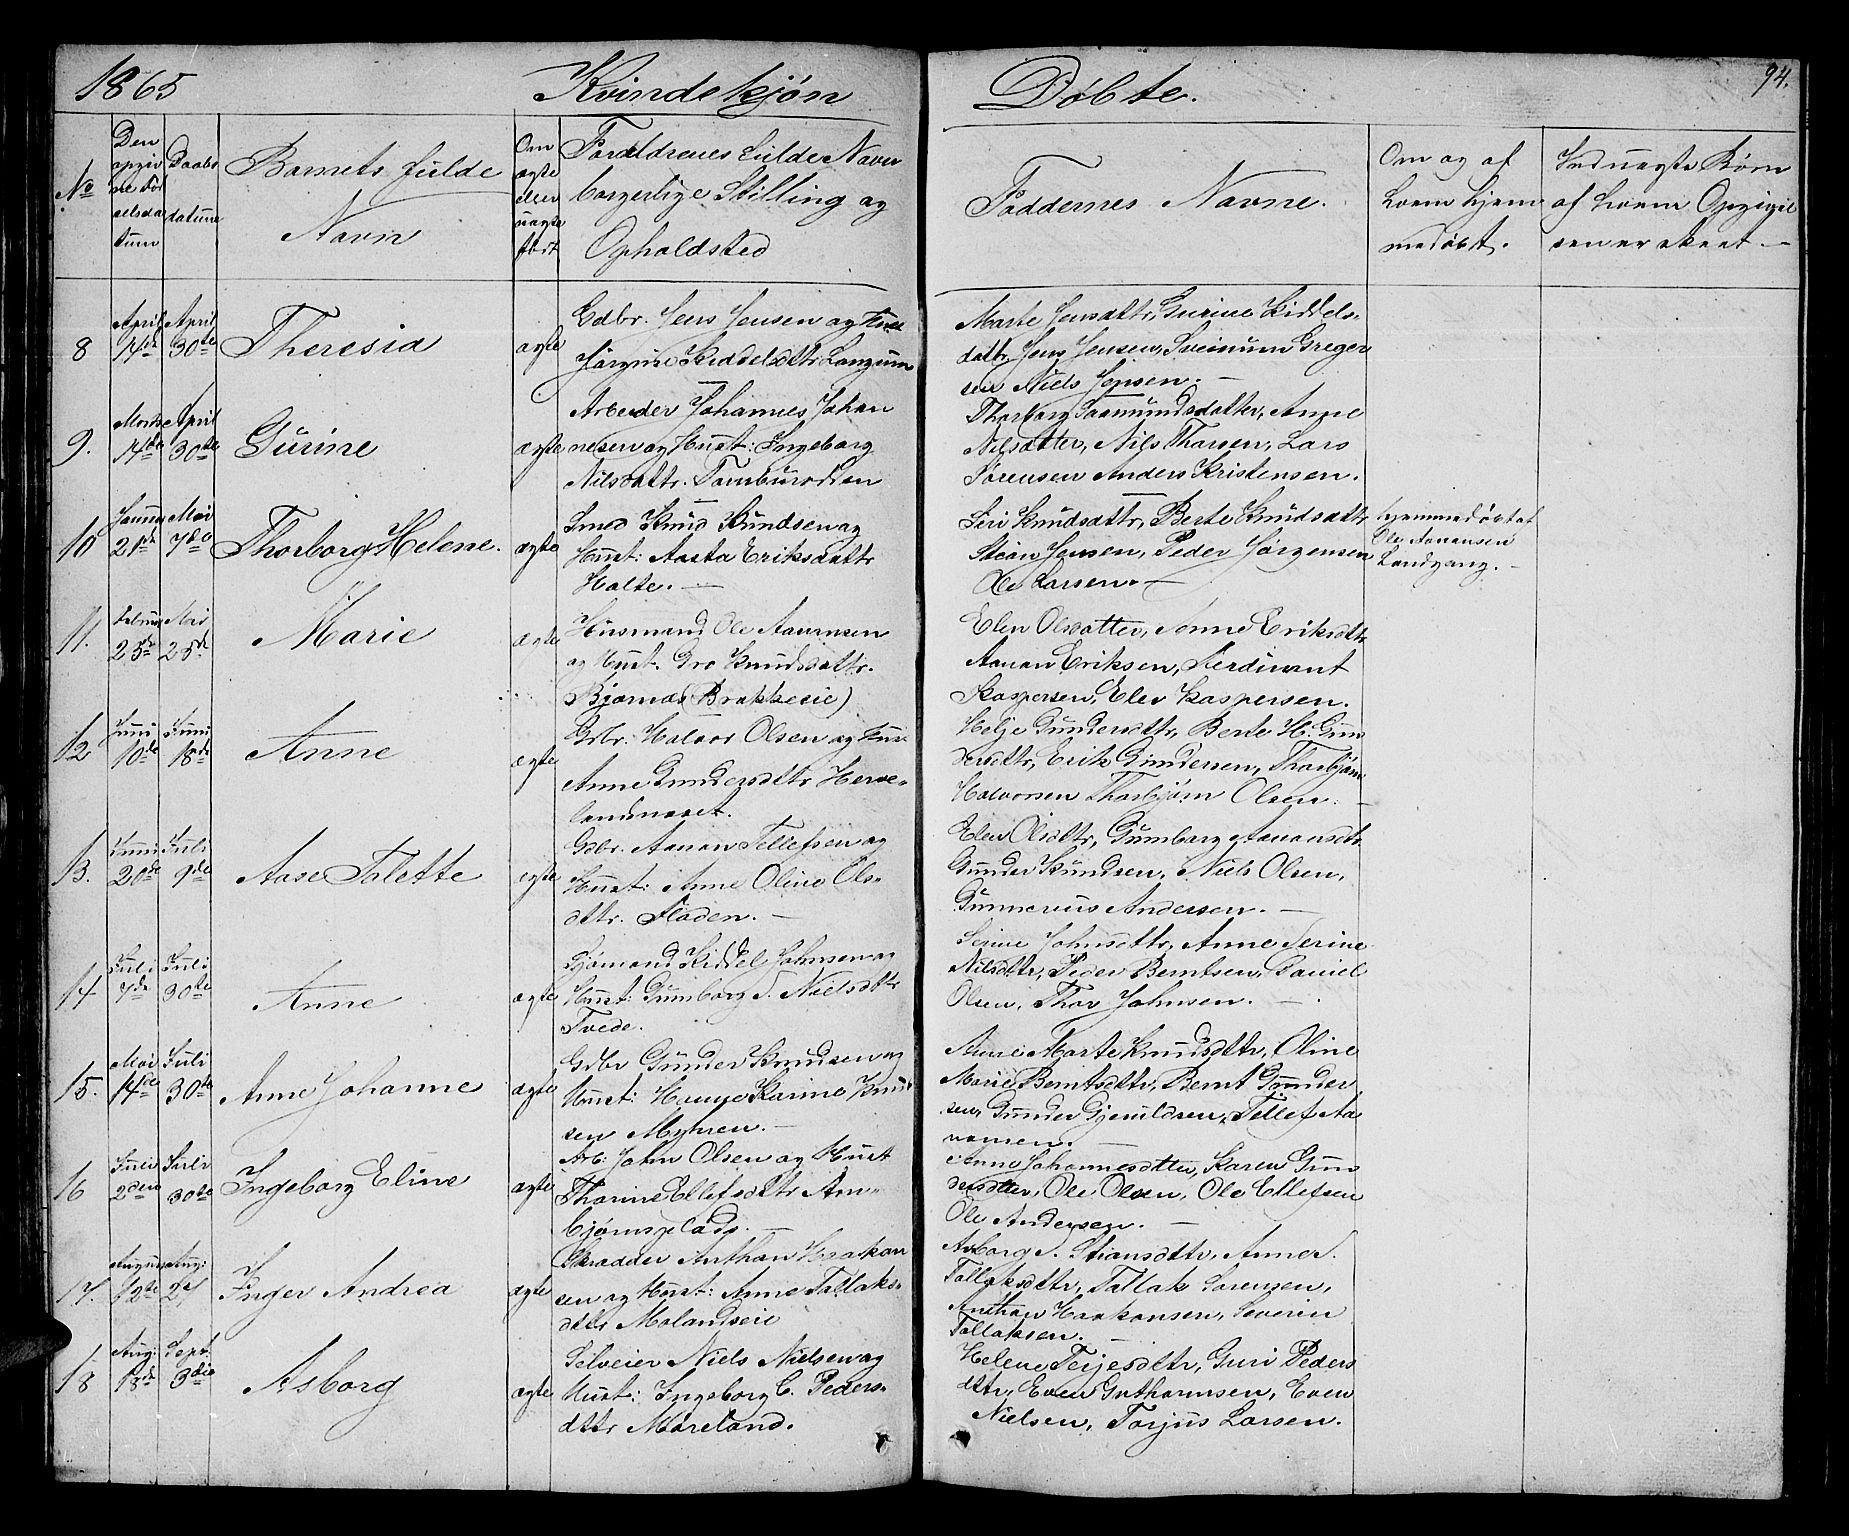 1865 Kvindekjøn Døbte. 94.
No
Den opgivne Fødselsdatum
Daabsdatum
Barnets fulde Navn
Om ægte eller uægte født
Forældrenes fulde Navn borgerlige Stilling og Opholdsted
Faddernes Navne.
Om og af hvem hjemmedøbt.
Ind uægte Børn af hvem Opgivelsen er skeet.
8 April 14de April 30te Theresia ægte
Gdbr. Jens Jensen og Hust
Jørgine Kiddelsdttr Langum
Marte Jensdttr, Gurine Kiddels-
dattr, Jens Jensen, Sveinum Greger
sen Niels Jepsen. —
9. Marts 14de April 30te Gurine ægte
Arbeider Johannes Johan
nesen og Hust: Ingeborg
Nilsdattr.
Thorborg Aasmundsdatter, Anne
Nilsdatter, Nils Tharsen, Lars
Sørensen Anders Kristensen.
10 Januar 21de Mai 7de Thorborg Helene. ægte
Smed Knud Knudsen og
Hust: Aasta Eriksdattr
Holte. —
Siri Knudsdttr, Berte Knudsdttr
Stian Jensen, Peder Jørgensen
Ole Larsen. —
hjemmedøbt af
Ole Aanansen
Landgang. —
11. Februar 25de Mai 25de Marie ægte
Husmand Ole Aanensen
og Hust. Gro Knudsdattr.
Bjørnaas (Brækkeeie)
Elen Olsdatter, Anne Eriksdttr
Aanan Eriksen, Ferdinant
Kaspersen, Elev Kaspersen.
12 Juni 10de Juni 18de Anne ægte
Grbr. Halvor Olsen og Hust
Anne Gundersdttr Herve-
landsnæset.
Helje Gundersdttr, Berte H. Gun
dersdttr, Erik Gundersen, Thorbjørn
Halvorsen Thorbjørn Olsen. —
13. Juni 20de Juli 9de Aase Talette ægte
Gdbr. Aanan Tellefsen og
Hust: Anne Oline Ols-
dttr. Fladen. —
Elen Olsdttr, Gunborg Aanansdttr
Gunder Knudsen, Niels Olsen,
Gunnerius Andersen. —
14 Juli 7de Juli 30te Anne ægte
Sjømand Kiddel Johnsen og
Hust: Gunborg S. Nielsdttr
Tvede.
Serine Johnsdttr, Anne Serine
Nilsdttr, Peder Berntsen, Daniel
Olsen, Thor Johnsen. —
15. Mai 14de Juli 30te Anne Johanne ægte
Grbr Gunder Knudsen og
Hust: Hanne Karine Knud
sen Myhren. —
Anne Marte Knudsdttr, Oline
Marie Berntsdttr, Bernt Gunder
sen, Gunder Gjeruldsen, Tellef Aa
nonsen. —
16 Juli 2den Juli 30te Ingeborg Eline ægte
Arb: John Olsen og Hust
Tharine Ellefsdttr Arn-
bjørnsplads. —
Anne Johannesdtter, Karen Gun
dersdtter, Ole Olsen, Ole Ellefsen
Ole Andersen. —
17. August 12te Aug: 27 Inger Andrea ægte
Skrædder Anthon Haakon
sen og Hust: Anne Tallaks-
dttr Molandseie
Asborg S. Stiansdttr, Anne S.
Tallaksdttr, Tallak Sørensen,
Anthon Haakonsen, Severin
Tallaksen. —
18 Aug: 18de Sept. 3die Asborg ægte
Selveier Niels Nielsen og
Hust: Ingeborg C. Peders-
dttr Møreland.
Helene Terjesdttr, Guri Peders
dttr, Even Guthormsen, Even
Nielsen, Torjus Larsen.